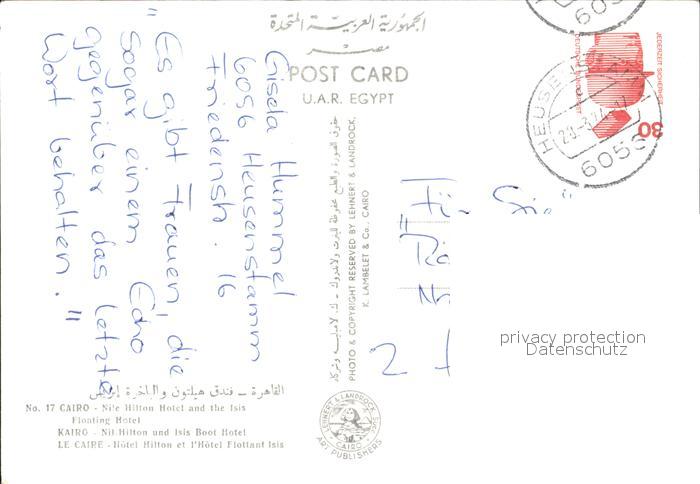 الجمهورية العربية المتحدة
مصر
POST CARD
U.A.R. EGYPT
"Es gibt Frauen, die
sogar einem Echo
gegenüber das letzte
Wort behalten."
Gisela Hummel
6056 Heusenstamm
Friedensh. 16
PHOTO & COPYRIGHT RESERVED BY LEHNERT & LANDROCK,
K. LAMBELET & Co., CAIRO
HEUSENSTAMM
6056
605
DEUTSCHE BUNDESPOST
JEDERZEIT SICHERHEIT
30
privacy protection
Datenschutz
القاهرة – فندق هيلتون والباخرة إيزيس
No. 17 CAIRO - Nile Hilton Hotel and the Isis
Floating Hotel
KAIRO - Nil Hilton und Isis Boot Hotel
LE CAIRE - Hôtel Hilton et l'Hôtel Flottant Isis
LEHNERT & LANDROCK SUCC.
CAIRO
ART PUBLISHERS